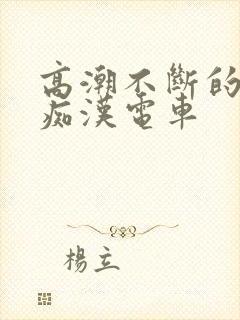 高潮不斷的
痴漢電車
楊立